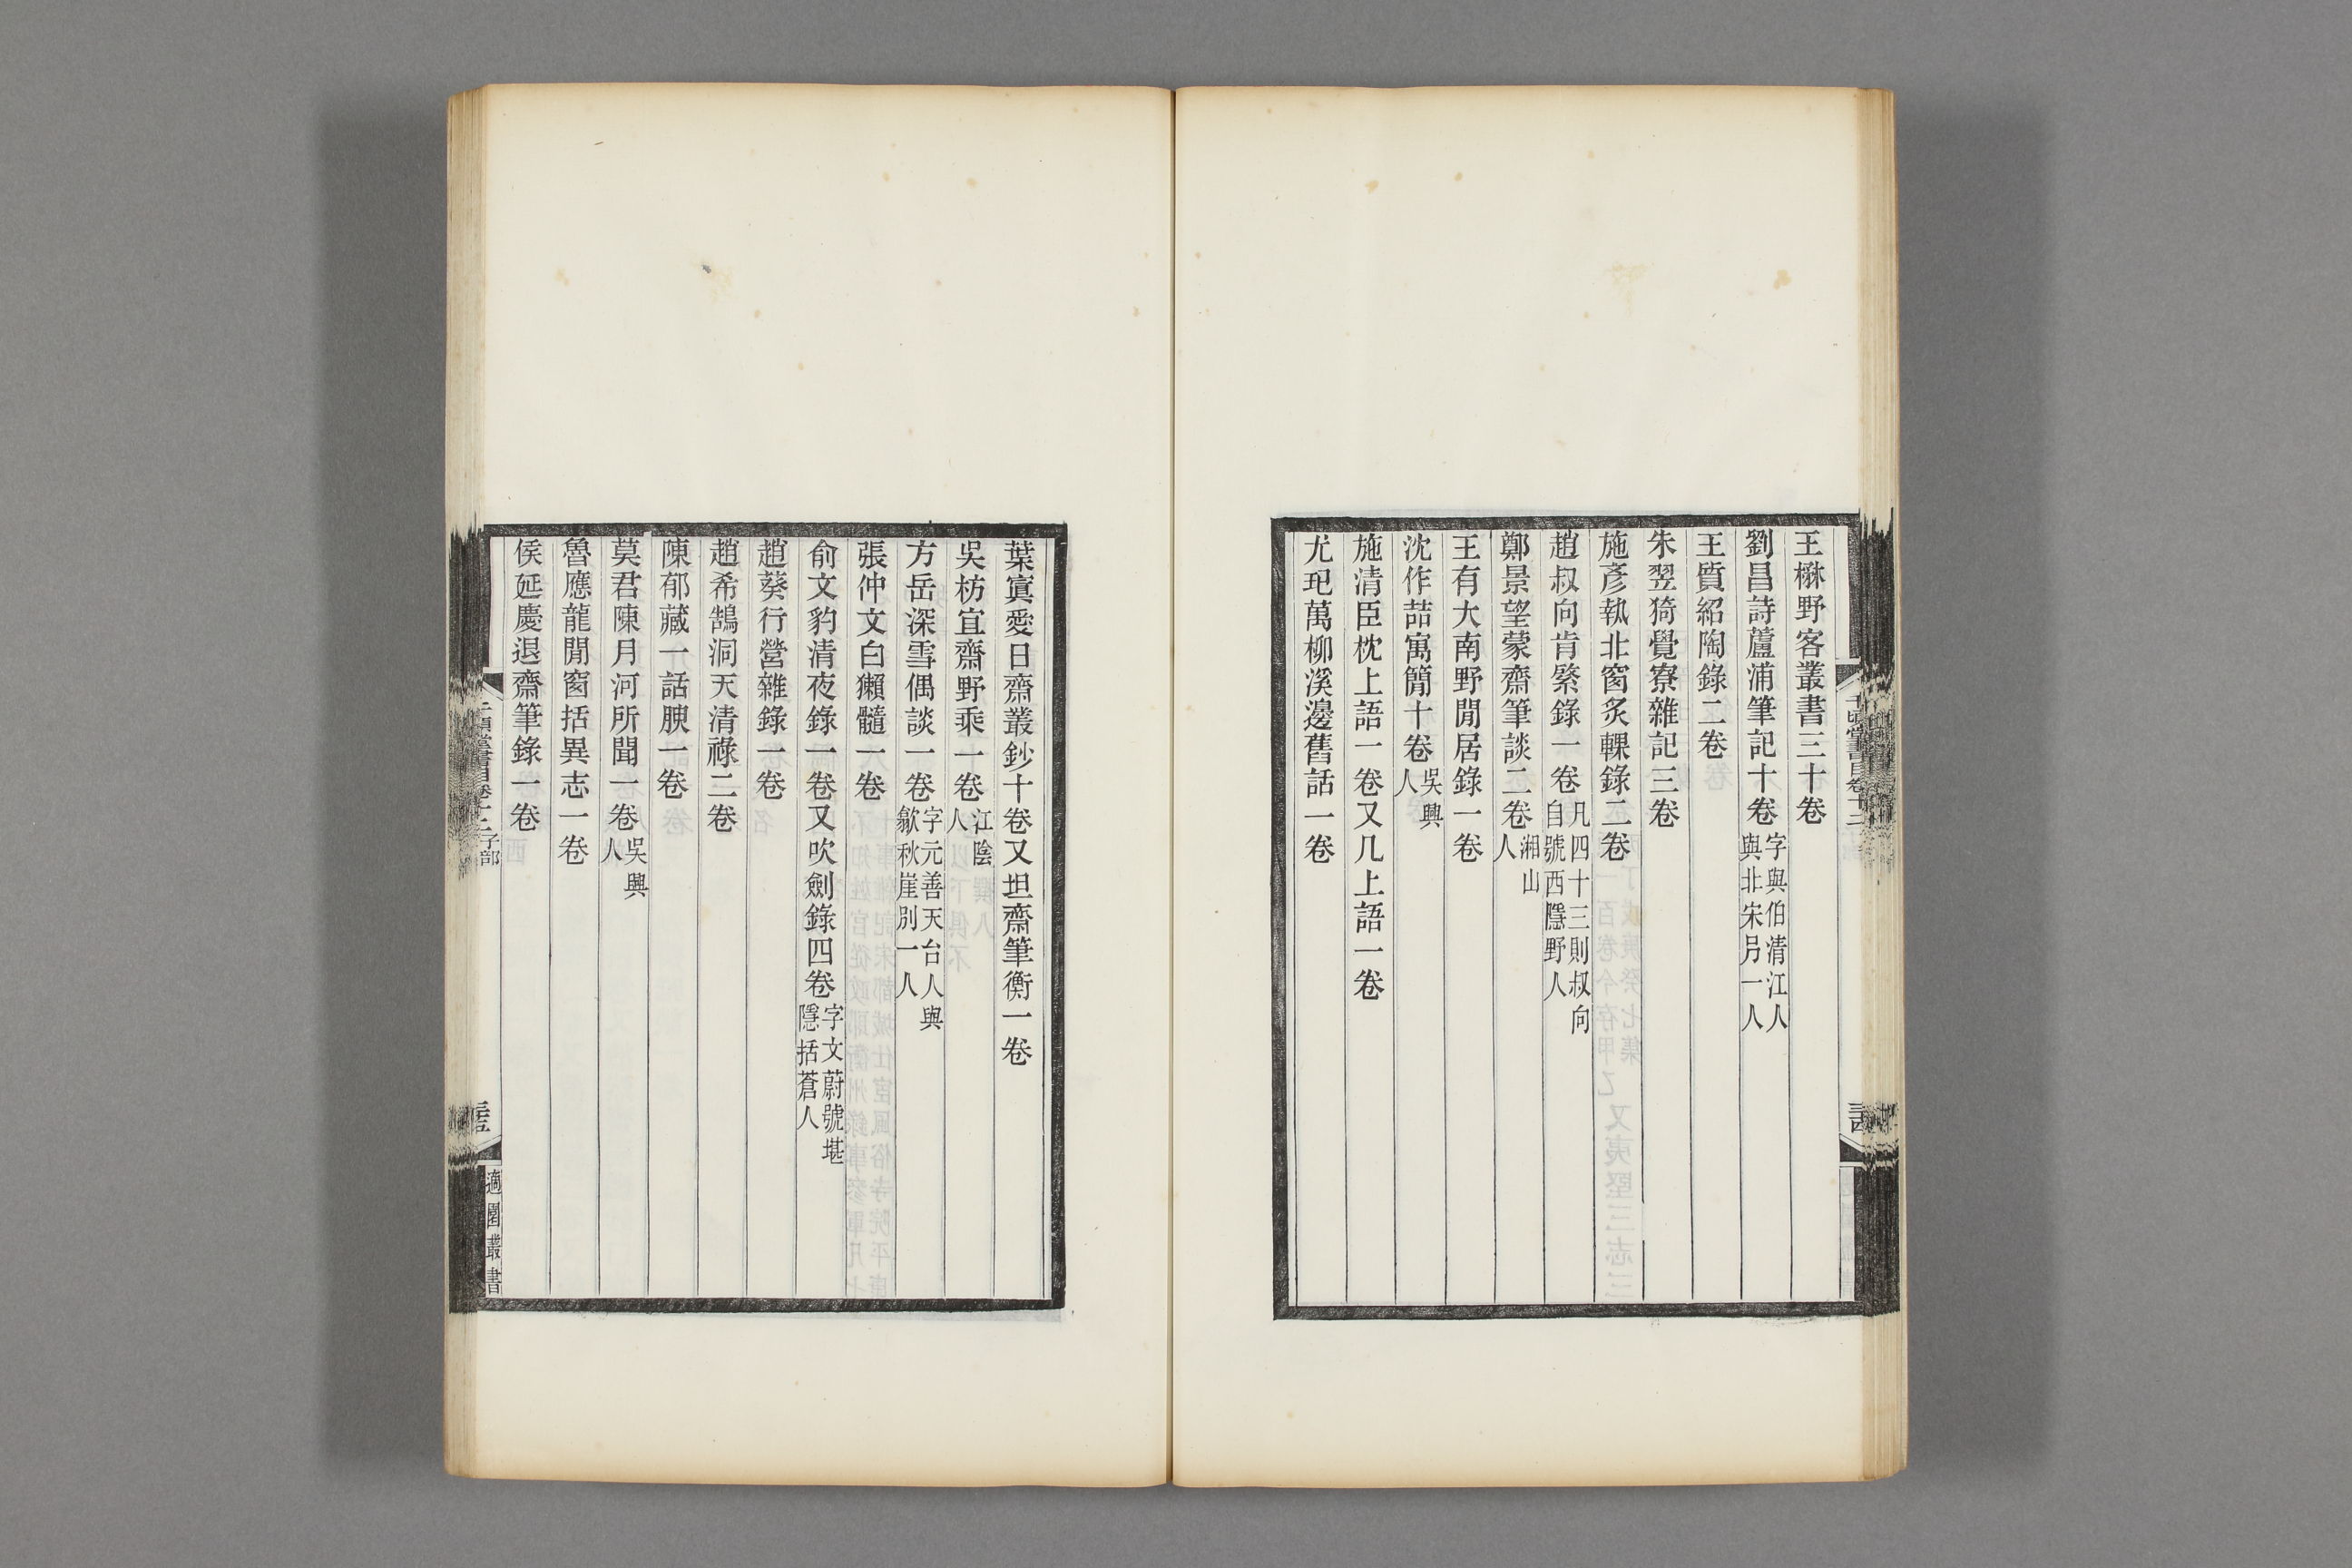 王楙野客叢書三十卷
劉昌詩蘆浦筆記十卷字與伯清江人與北宋另一人
王質紹陶錄二卷
朱翌猗覺寮雜記三卷
施彥執北窗炙輠錄二卷
趙叔向肯綮錄一卷凡四十三則叔向自號西隱野人
鄭景望蒙齋筆談二卷湘山人
王有大南野閒居錄一卷
沈作喆寓簡十卷吳興人
施清臣枕上語一卷又几上語一卷
尤玘萬柳溪邊舊話一卷
葉寘愛日齋叢鈔十卷又坦齋筆衡一卷
吳枋宜齋野乘一卷江陰人
方岳深雪偶談一卷字元善天台人與歙秋崖別一人
張仲文白獺髓一卷
俞文豹清夜錄一卷又吹劍錄四卷字文蔚號堪隱括蒼人
趙葵行營雜錄一卷
趙希鵠洞天清祿二卷
陳郁藏一話腴一卷
莫君陳月河所聞一卷吳興人
魯應龍閒窗括異志一卷
侯延慶退齋筆錄一卷
千頃堂書目卷十二子部
適園叢書